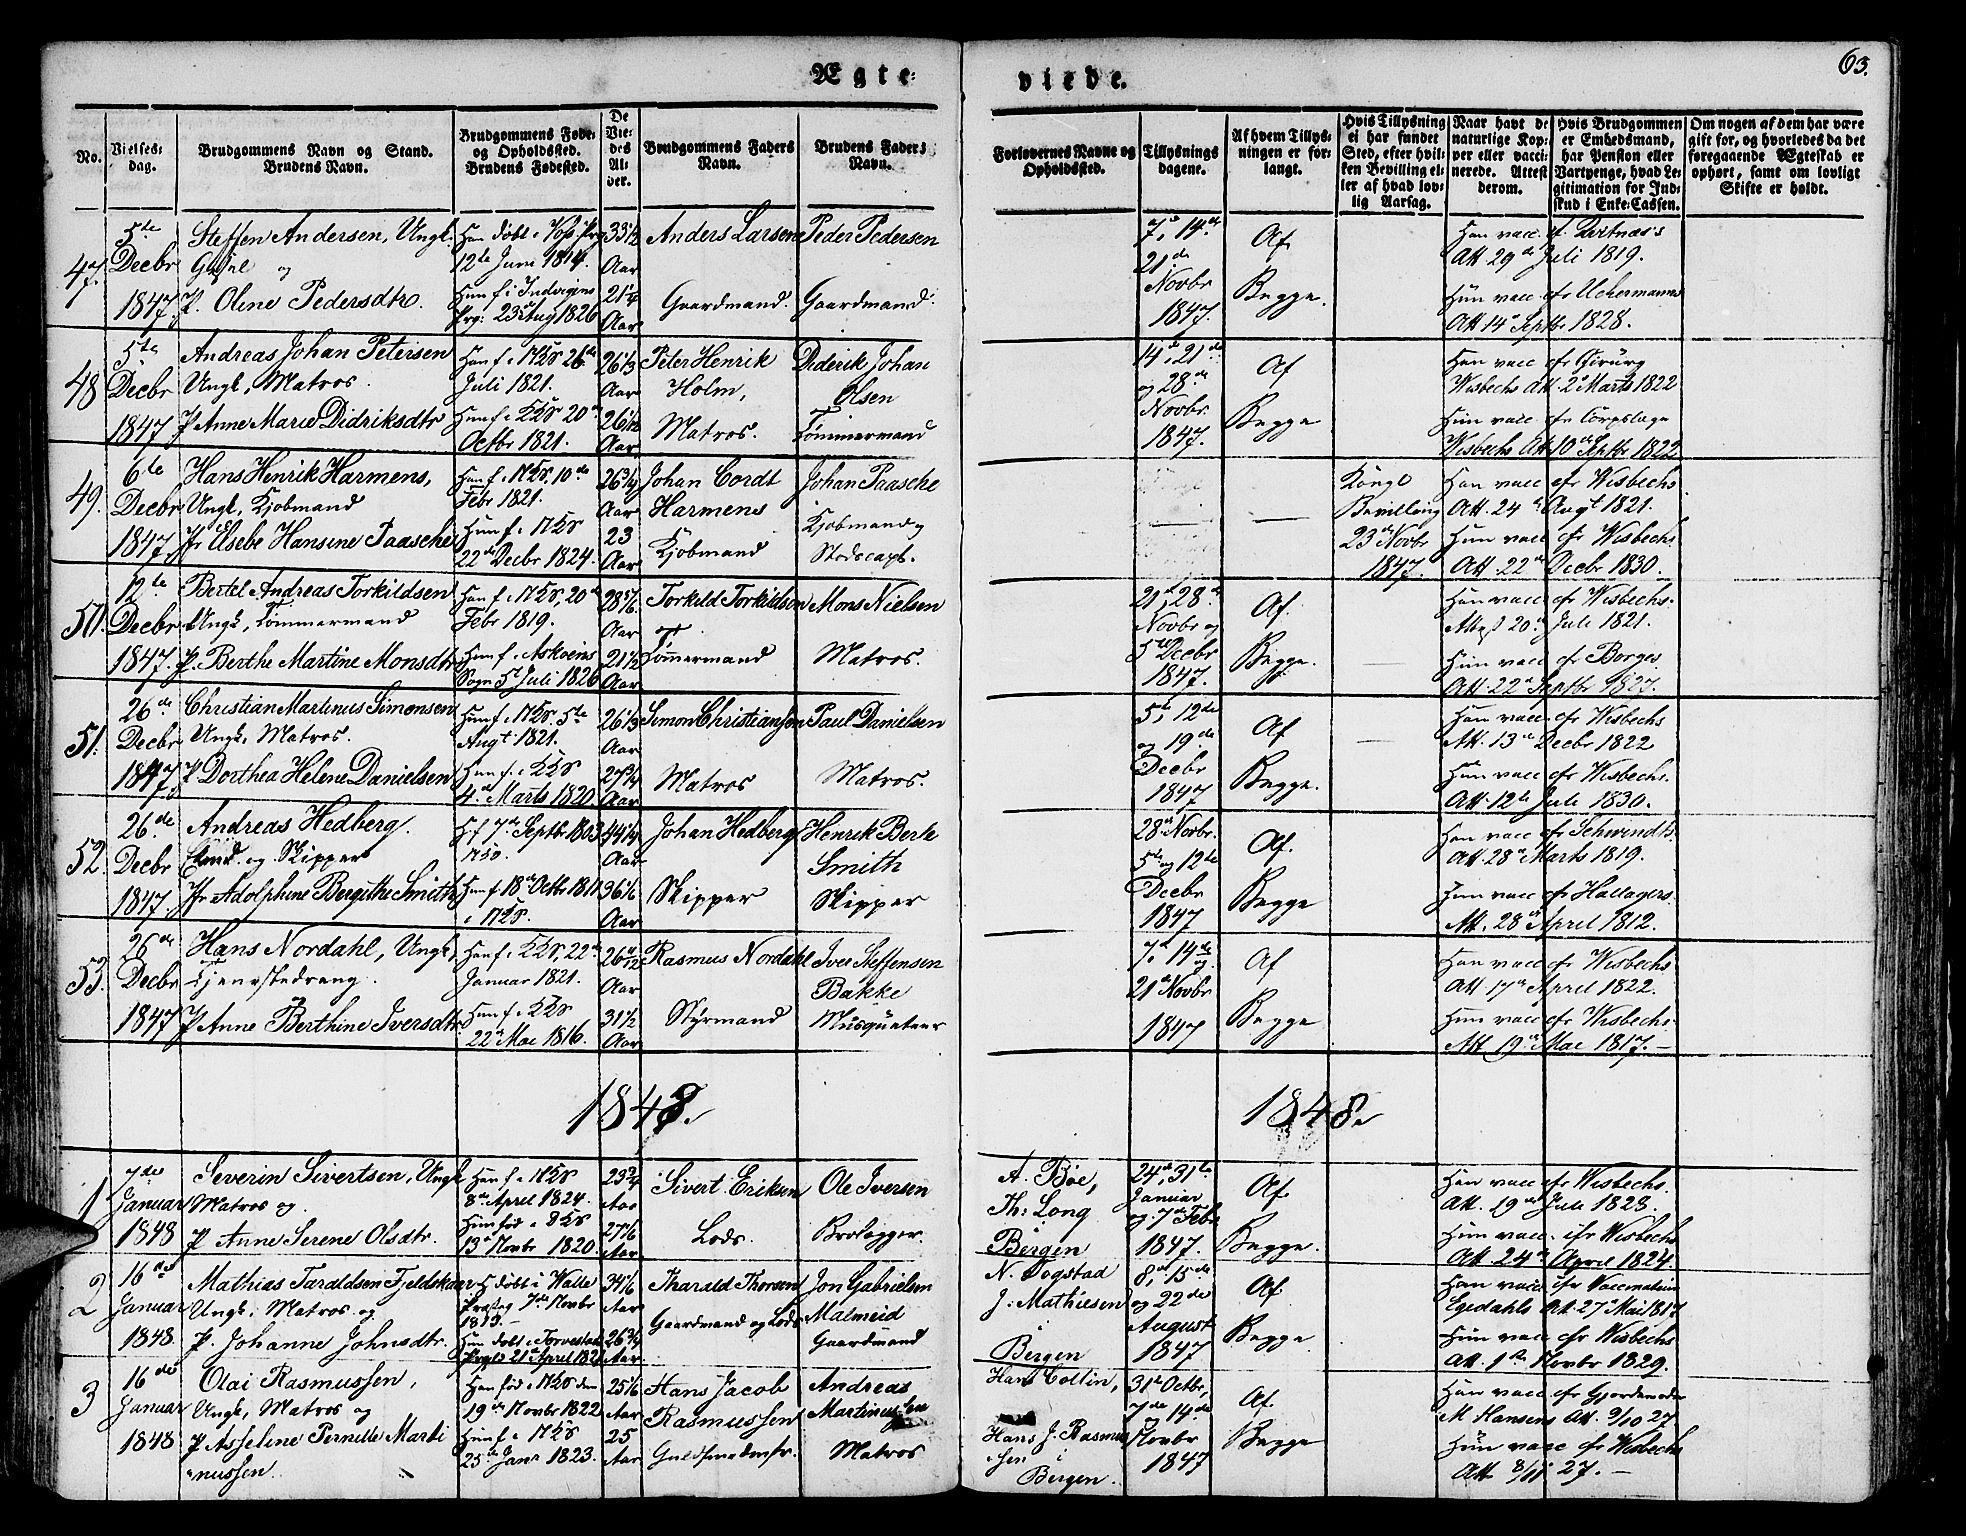 Ægte=
viede.
63.
No.
Vielses-
dag.
Brudgommens Navn og Stand.
Brudens Navn.
Brudgommens Føde-
og Opholdssted.
Brudens Fødested.
De
Vie-
des
Al-
der.
Brudgommens Faders
Navn.
Brudens Faders
Navn.
Forlovernes Navne og
Opholdssted.
Tillysnings
dagene.
Af hvem Tillys-
ningen er for-
langt.
Hvis Tillysning
ei har fundet
Sted, efter hvil-
ken Bevilling el-
ler af hvad lov-
lig Aarsag.
Naar havt de
naturlige Kop-
per eller vacci-
nerede. Attest
derom.
Hvis Brudgommen
er Embedsmand,
har Pension eller
Vartpenge, hvad Le-
gitimation for Ind-
skud i Enke-Cassen.
Om nogen af dem har være
gift for, og hvorledes da det
foregaaende Ægteskab er
ophørt, samt om lovligt
Skifte er holdt.
47.
5te
Decbr
1847.
Steffen Andersen, Ungk.
og
P. Olene Pedersdtr.
Han døbt i Voss Prg
12te Juni 1814.
Hun f. i Indvigens
Prg: 23 Aug 1826
33 1/2
Aar
21 1/4
Aar
Anders Larsen
Gaardmand.
Peder Pedersen
Gaardmand.
7, 14de
21de
Novbr
1847.
Af
Begge.
Han vacc. ef
Att 29de Juli 1819.
Hun vacc efr Uchermanns
Att 14d Septbr 1828.
48
5te
Decbr
1847
Andreas Johan Petersen
Ungk, Matros.
P Anne Marie Didriksdtr
Han f. i 26de
Juli 1821.
Hun f. i 20de
Octbr 1821.
26 1/3
Aar
26 1/12
Aar
Peter Henrik
Holm,
Matros.
Diderik Johan
Olsen
Tømmermand
14d 21de
og 28de
Novbr.
1847.
Af
Begge
Han vacc efr Chirurg
Wisbechs Att. 2d Marts 1822
Hun vacc efr Corpslæge
Wisbechs Att 10de Septbr 1822
49.
6te
Decbr
1847
Hans Henrik Harmens,
Ungk, Kjøbmand
Jfr Elsebe Hansine Paasche
Han f. i 10de
Febr 1821.
Hun f. i
22de Decbr 1824.
26 3/4
Aar
23
Aar
Johan Cordt
Harmens
Kjøbmand
Johan Paasche
Kjøbmand og
Stadscapt.
Kongl
Bevilling
23de Novbr
1847.
Han vacc efr Wisbechs
Att. 24de Augt 1821.
Hun vacc efr Wisbechs
Att 22de Decbr 1830.
50.
12te
Decbr
1847.
Bertel Andreas Torkildsen
Ungk, Tømmermand
P. Berthe Martine Monsdtr
Han f. i 20de
Febr 1819.
Hun f. i Askøens
Sogn 5t Juli 1826
28 5/6
Aar
21 1/2
Aar
Torkild Torkildsen
Tømmermand
Mons Nielsen
Matros.
21, 28de
Novbr og
5te Decbr
1847.
Af.
Begge.
Han vacc efr Wisbechs.
Attest 20de Juli 1821.
Hun vacc efr Borges
Att 22d Septbr 1827.
51.
26de
Decbr
1847
Christian Martinus Simonsen
Ungk, Matros.
P Dorthea Helene Danielsen
Han f. i 5te
Augt 1821.
Hun f. i
4de Marts 1820
26 1/3
Aar
27 3/4
Aar
Simon Christiansen
Matros
Paul Danielsen
Matros.
5t, 12de
og 19de
Decbr
1847
Af
Begge.
Han vacc efr Wisbechs
Att. 13de Decbr 1822
Hun vacc efr Wisbechs.
Att. 12te Juli 1830.
52.
26de
Decbr
1847.
Andreas Hedberg.
Enkmd. og Skipper
Jfr Adolphine Bergitte Smith
H f 7de Septbr 1803
Hun f 18de Octbr 1811
44 1/4
Aar
36 1/6
Aar
Johan Hedberg
Skipper
Henrik Berle
Smith
Skipper
28de Novbr.
5te og 12te
Decbr
1847
Af.
Begge
Han vacc efr Schwindts
Att. 28de Marts 1819.
Hun vacc efr Hallagers
Att. 28de April 1812.
53.
26de
Decbr
1847
Hans Nordahl, Ungk,
Tjenestedreng.
P Anne Berthine Iversdtr
Han f. i 22de
Januar 1821.
Hun f. i
22d Mai 1816.
26 11/12
Aar
31 1/2
Aar
Rasmus Nordahl
Styrmand
Iver Steffensen
Bakke
Musqueteer
7, 14de
og
21d Novbr
1847
Af
Begge
Han vacc efr Wisbechs
Att. 17de April 1822.
Hun vacc efr Wisbechs
Att 19de Mai 1817.
1848.
1848.
1
7de
Januar
1848
Severin Sivertsen, Ungk
Matros og.
P Anne Serene Olsdtr.
Han f. i
8de April 1824.
Hun fød i
13d Novbr 1820
23 3/4
Aar
27 1/6
Aar
Sivert Eriksen
Lods.
Ole Iversen
Brolægger.
A. Bøe,
Th: Long
Bergen
24d, 31te
Januar
og 7de Febr
1847.
Af.
Begge.
Han vacc efr Wisbechs.
Att. 19de Juli 1828.
Hun vacc. efr Wisbechs
Att 24de April 1824.
2
16de
Januar
1848.
Mathias Taraldsen Fjeldskaar
Ungk. Matros og
P. Johanne Johnsdtr.
H døbt i Walle
Præsteg 7de Novbr
1813.
Hun døbt i Torvestad
Prgld 21d April 1821
34 1/6
Aar
26 3/4
Aar
Tharald Thorsen
Gaardmand og Lods
Jon Gabrielsen
Malmeid
Gaardmand
N. Dogstad
J. Mathiesen
Bergen
8, 15de
og 22de
August
1847
Af.
Begge
Han vacc efr Vaccinateur
Egedahls At. 27d Mai 1817
Hun vacc efr Wisbechs
Att. 1ste Novbr 1829.
3
16de
Januar
1848
Olai Rasmussen,
Ungk, Matros og
P Asseline Pernille Marti
nussen.
Han fød i den
19de Novbr 1822
Hun f. i
25de Janr 1823.
25 1/6
Aar
25
Aar
Hans Jacob
Rasmussen
Guldsmedmstr.
Andreas
Martinussen
Matros
Hans Collin,
Hans J. Rasmus
sen i
Bergen.
31d Octbr,
7de 14de
Novbr
1847
Af.
Begge
Han vacc efr Gjordemoder
M Hansens Att. 9/10 27.
Hun vacc efr Wisbechs
Att 8/11 27.